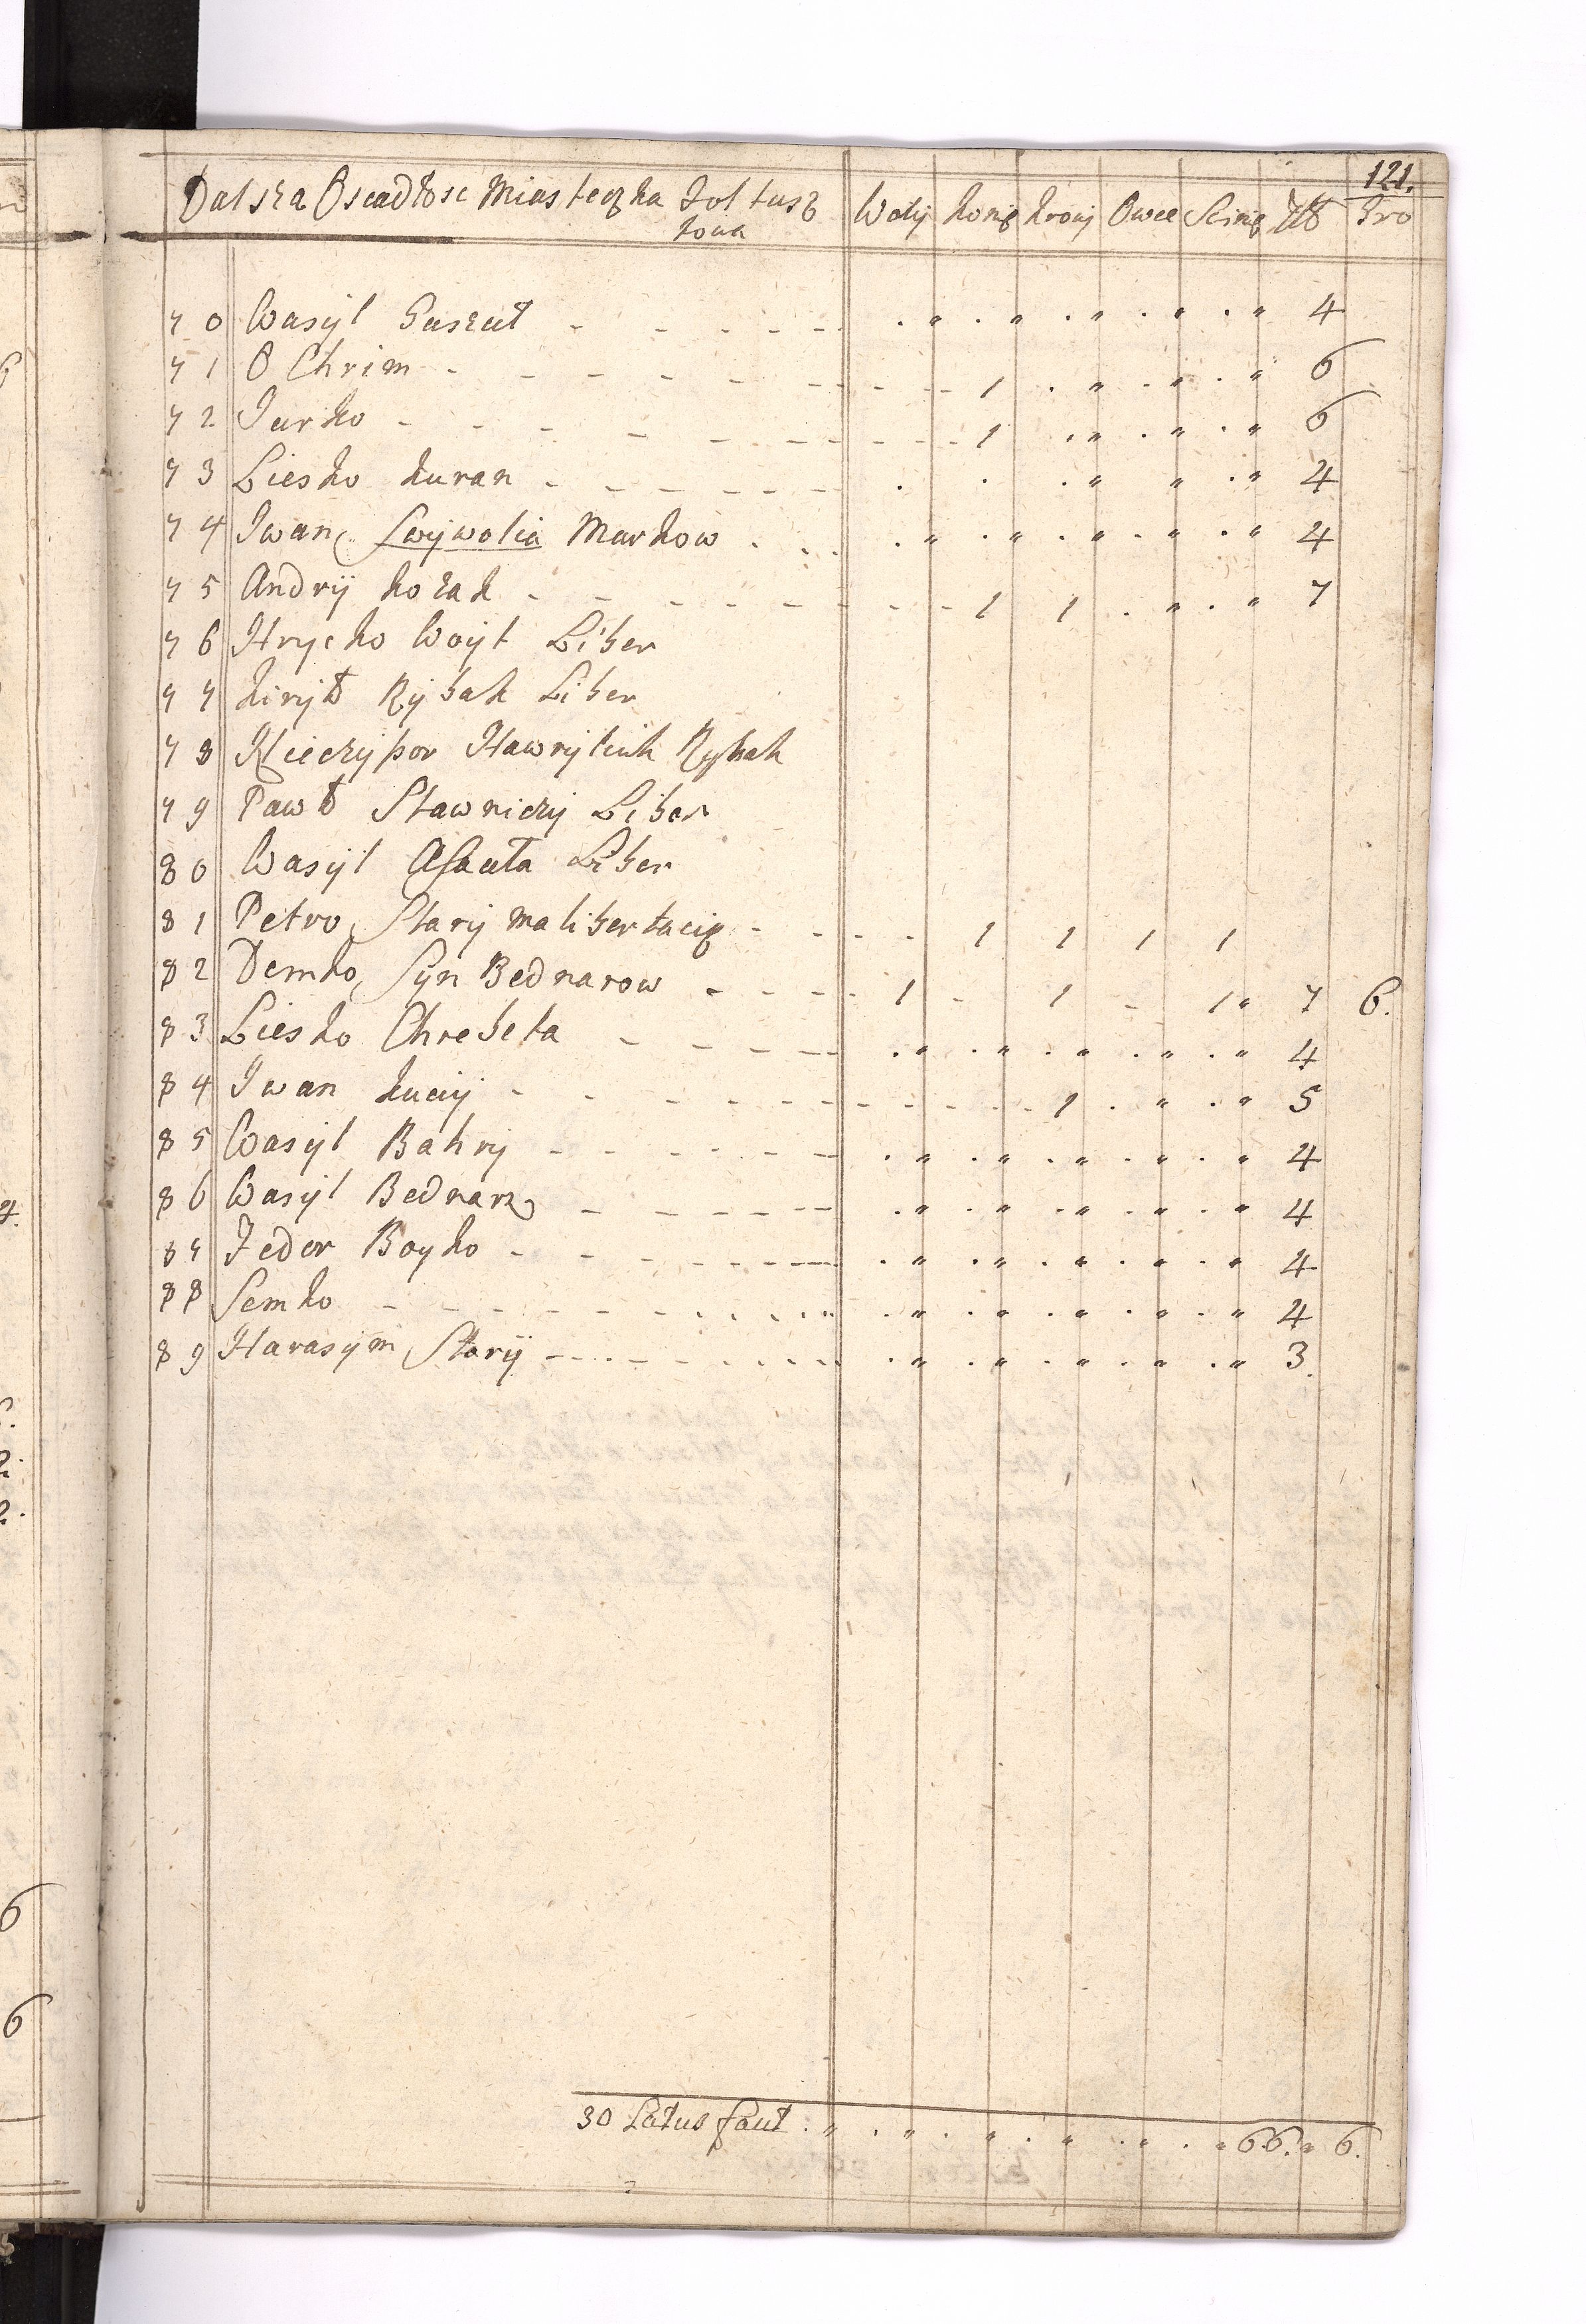 121.
Dalsza Osiadłosc Miasteczka Tołtusz Woły konie krowy Owce Scinie Zł Gro
kowa
70 Wasyl " " " " " 4
71 O Chrim 1 " " " 6
72 Jurko 1 " " " 6
73 Liesko kuran " " " 4
74 Jwan Swywolia Markow " " " " " 4
75 Andryi kozak 1 1 " " 7
76 Hrycko Woyt Liber
77 kiryło Rybak Liber
78 Nieczypor Hawryluk Rybak
79 Pawło Stawniczy Liber
80 Wasyl Liber
81 Petro Stary ma libertacię 1 1 1 1
82 Demko Syn Bednarow 1 - 1 - 1 " 7 6.
83 Liesko Chrebeta " " " " " 4
84 Jwan kuciy 1 " " 5
85 Wasyl Bahry " " " " " 4
86 Wasyl Bednarz " " " " " 4
87 Feder Boyko " " " " " 4
88 Semko " " " " " 4
89 Harasym Stary " " " " " 3.
30 Latus faut " " " " " " 66. " 6.